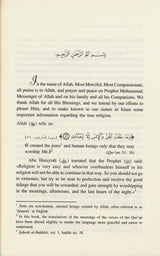 بسم الله الرحمن الرحيم
In the name of Allah, Most Merciful, Most Compassionate,
all praise is to Allah, and prayer and peace on Prophet Muhammad,
Messenger of Allah and on his family and all his Companions. We
thank Allah for all His Blessings, and we intend by our efforts to
please Him, and to make known to our sisters in Islam some
important information regarding the true religion.
Allah tells us:
﴿وَمَا خَلَقْتُ الْجِنَّ وَالْإِنْسَ إِلَّا لِيَعْبُدُونِ﴾
created the jinns¹ and human beings only that they may
worship Me.
(Qur'an 51: 56)
Abu Hurayrah narrated that the Prophet said,
«Religion is very easy and whoever overburdens himself in his
religion will not be able to continue in that way. So you should not go
to extremes, but try to be near to perfection and receive the good
tidings that you will be rewarded; and gain strength by worshipping
in the mornings, afternoons, and the last hours of the night.»
¹ Jinns are non-human, rational beings created by Allah, often referred to as
'demons' in English.
² In this book, the translations of the meanings of the verses of the Qur'an
have been altered slightly to render the language more graceful and easier to
understand.
³ Saheeh al-Bukhari, vol. 1, hadith no. 38.